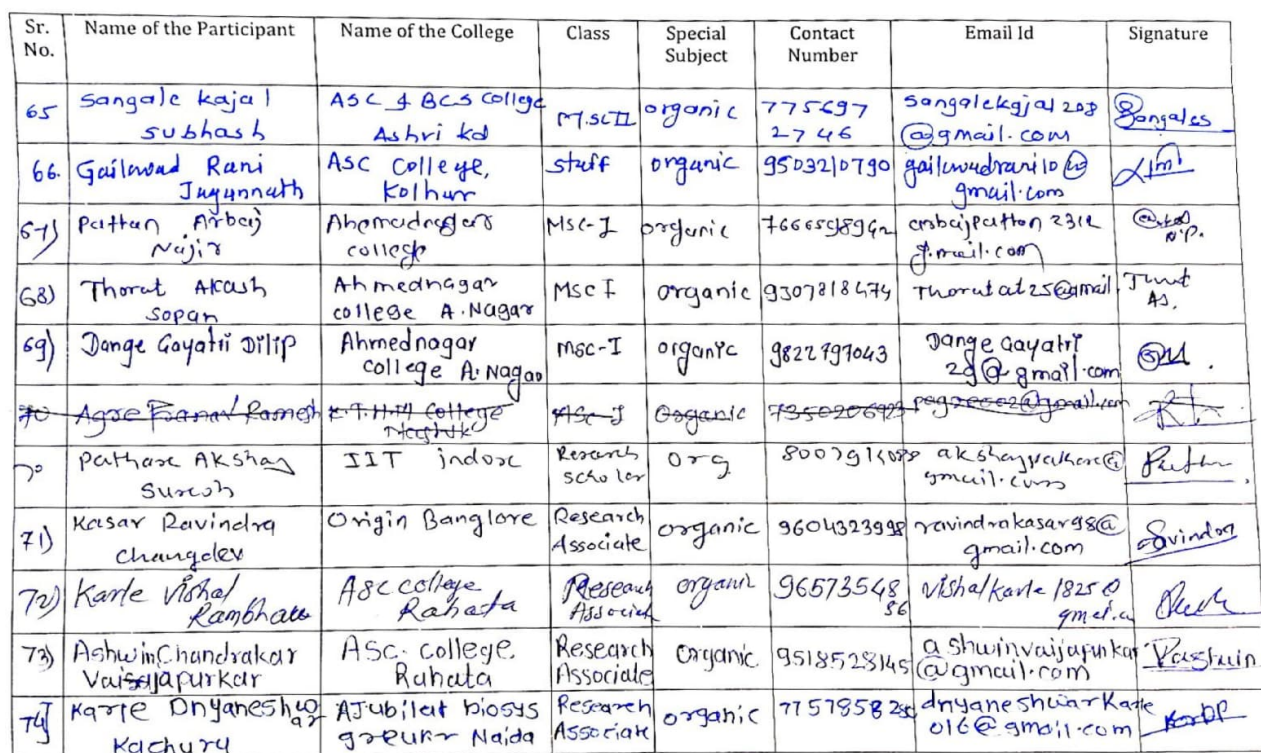 Sr. No. Name of the Participant Name of the College Class Special Subject Contact Number Email Id Signature
65 Sangale Kajal Subhash ASC & BCS College Ashri kd M.SC II organic 775697 2746 sangalekajal208 @gmail.com Sangales
66. Gaikwad Rani Jagannath ASC College, Kolhar Staff organic 9503210790 gaikwadrani10@ gmail.com
67) Pathan Arbaj Najir Ahemadnagar college MSc-I organic arbajpattan 2312 gmail.com N.P.
68) Thorat Akash Sopan Ahmednagar college A.Nagar MSc I organic 9307818474 Thoratat25@gmail AS.
69) Dange Gayatri Dilip Ahmednagar college A.Nagar MSC-I organic 9822797043 Dange Gayatri 2d@gmail.com
70 Agre Ramesh K.T.H.M College Nashik MSc-I Organic
70 Pathare Akshay Suresh IIT indore Research scholar org akshaypathare@ gmail.com
71) Kasar Ravindra Changdev Origin Banglore Research Associate organic 9604323998 ravindrakasar98@ gmail.com Ravindra
72) Karle Vishal Rambhau ASC college Rahata Research Associate organic 96573548 86 Vishalkarle1825@
73) Ashwin Chandrakar Vaijapurkar ASC. college Rahata Research Associate Organic 9518528145 ashwinvaijapurkar @gmail.com Vashwin
74) Karle Dnyaneshwar Kachuru Jubilat biosys Noida Research Associate organic dnyaneshwarkarle 016@gmail.com KarleDP